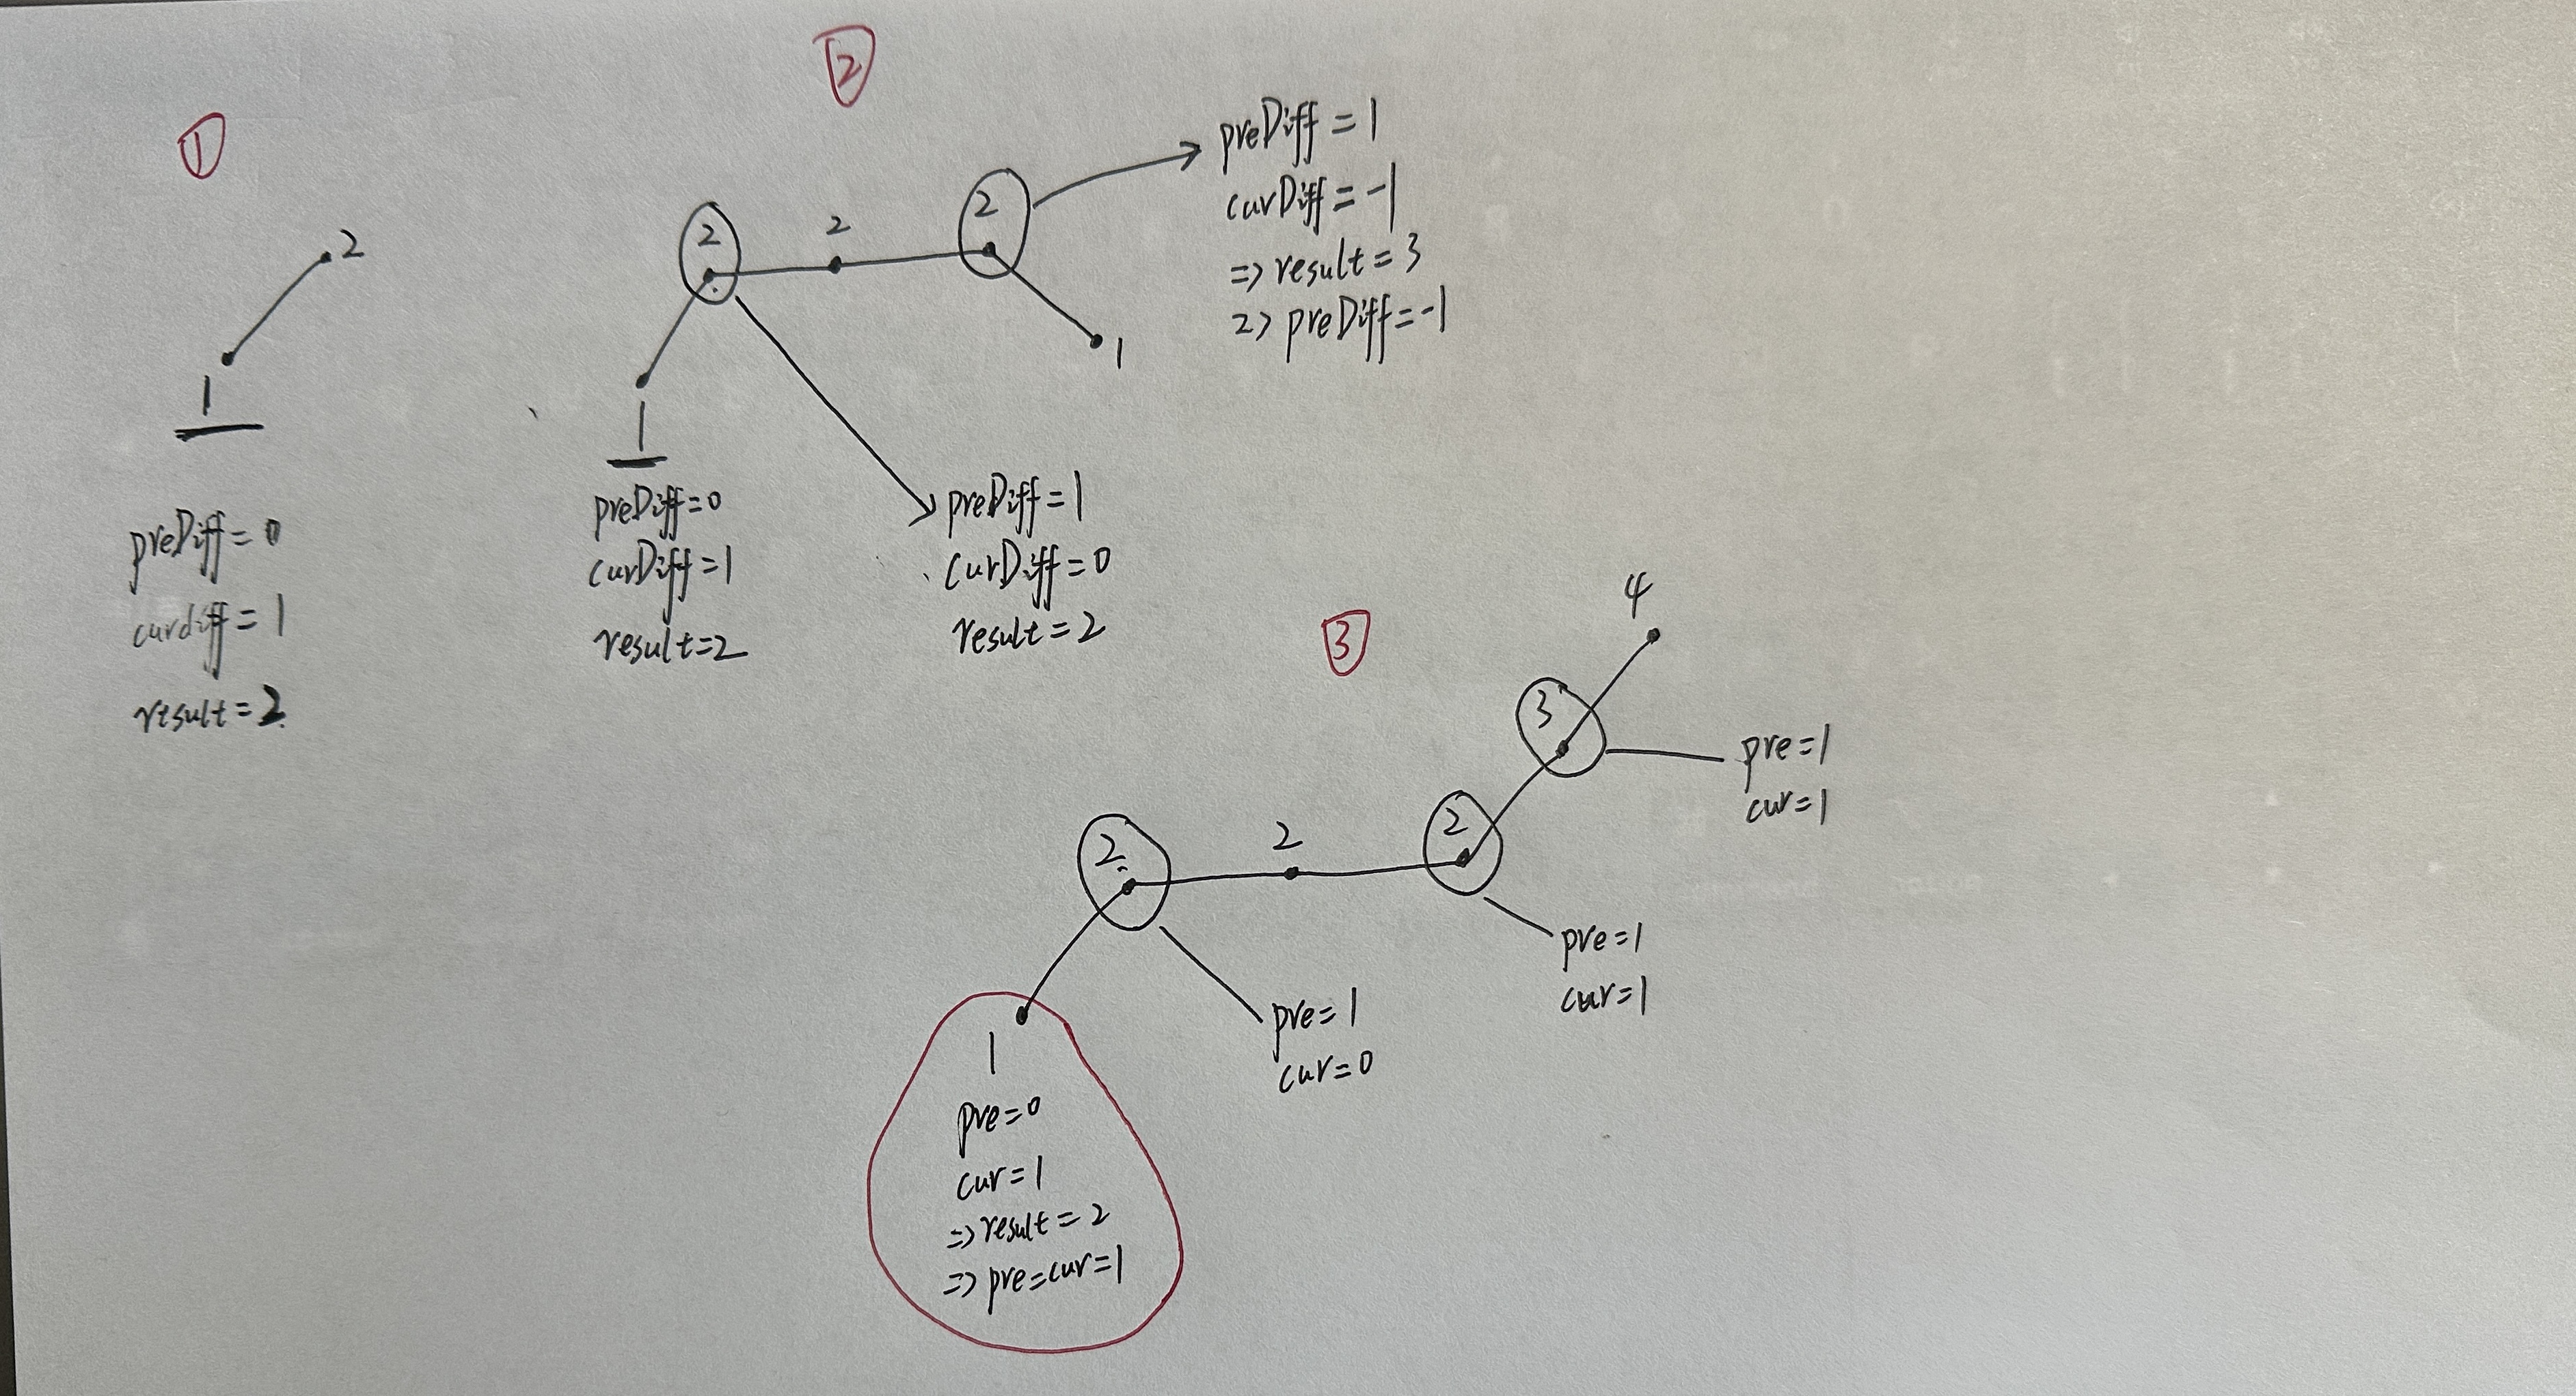 ①
2
1
preDiff=0
curdiff=1
result=2
②
2
2
2
1
1
preDiff=1
curDiff=-1
=> result=3
2> preDiff=-1
preDiff=0
curDiff=1
result=2
preDiff=1
curDiff=0
result=2
③
4
3
2
2
2
1
pre=1
cur=1
pre=1
cur=1
pre=1
cur=0
pre=0
cur=1
=> result=2
=> pre=cur=1